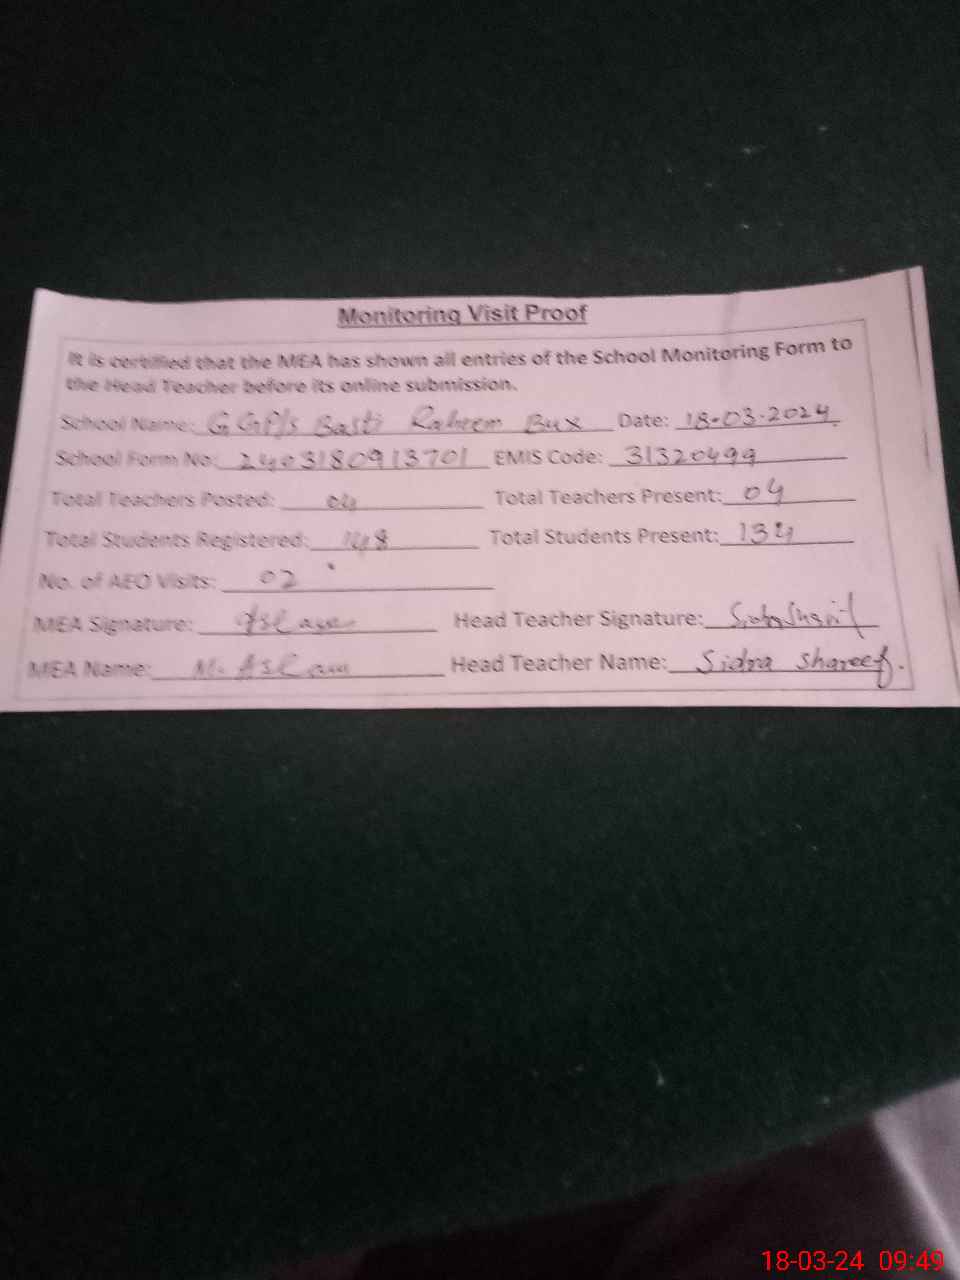 Monitoring Visit Proof
It is certified that the MEA has shown all entries of the School Monitoring Form to
the Head Teacher before its online submission.
School Name: G GP/s Basti Raheem Bux Date: 18-03-2024
School Form No: 2403180913701 EMIS Code: 31320499
Total Teachers Posted: 04 Total Teachers Present: 04
Total Students Registered: 148 Total Students Present: 134
No. of AEO Visits: 02
MEA Signature: Aslam Head Teacher Signature:
MEA Name: M. Aslam Head Teacher Name: Sidra Shareef.
18-03-24 09:49